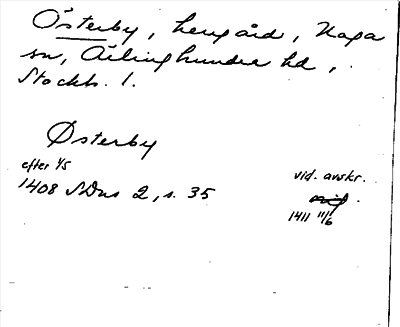 Österby, herrgård, Haga
sn, Ärlinghundra hd,
Stockh. l.
Østerby
efter 1/5
1408 SDns 2, s. 35
vid. avskr.
1411 11/6